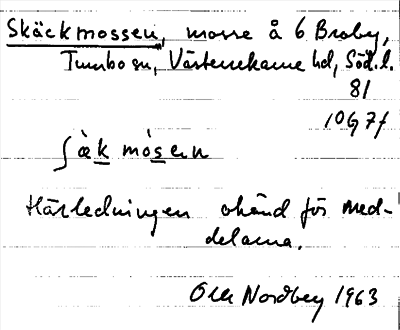 Skäckmossen, mosse å 6 Broby,
Tumbo sn, Västerrekarne hd, Söd.l.
81
10G 7f
ʃæ̀k mósen
Härledningen okänd för med-
delarna.
Olle Nordberg 1963